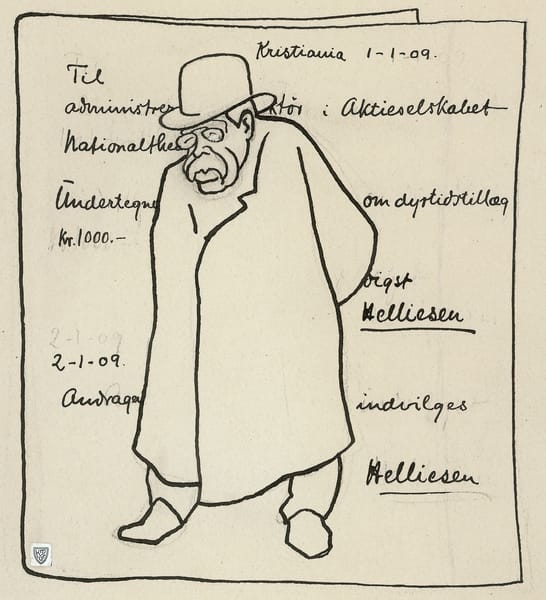 Kristiania 1-1-09.
Til
administre ktör i Aktieselskabet
Nationalthe
Undertegne om dyrtidstillæg
Kr. 1000.-
digst
Helliesen
2-1-09
2-1-09.
Andrage indvilges
Helliesen